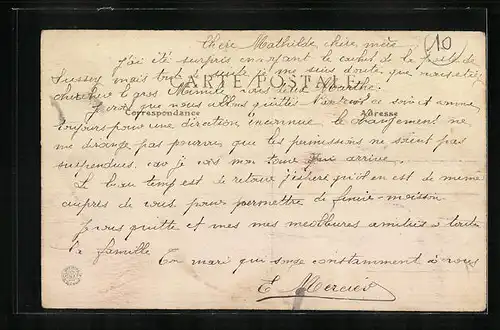 Chère Mathilde, chère mère
10
J'ai été surpris en voyant le cachet de la poste de
Sussey mais tout de suite je me suis douté que vous étiez
CARTE POSTALE
chercher le gros Mimile vous et Marthe.
Je crois que nous allons quitter ce soir et comme
Correspondance
Adresse
toujours pour une direction inconnue le changement ne
me dérange pas pourvu que les permissions ne soient pas
suspendues car je vois mon tour qui arrive.
Le beau temps est de retour j'espère qu'il en est de même
auprès de vous pour permettre de finir moisson
Je vous quitte et mes meilleures amitiés à toute
la famille
Ton mari qui songe constamment à vous
E Mercier